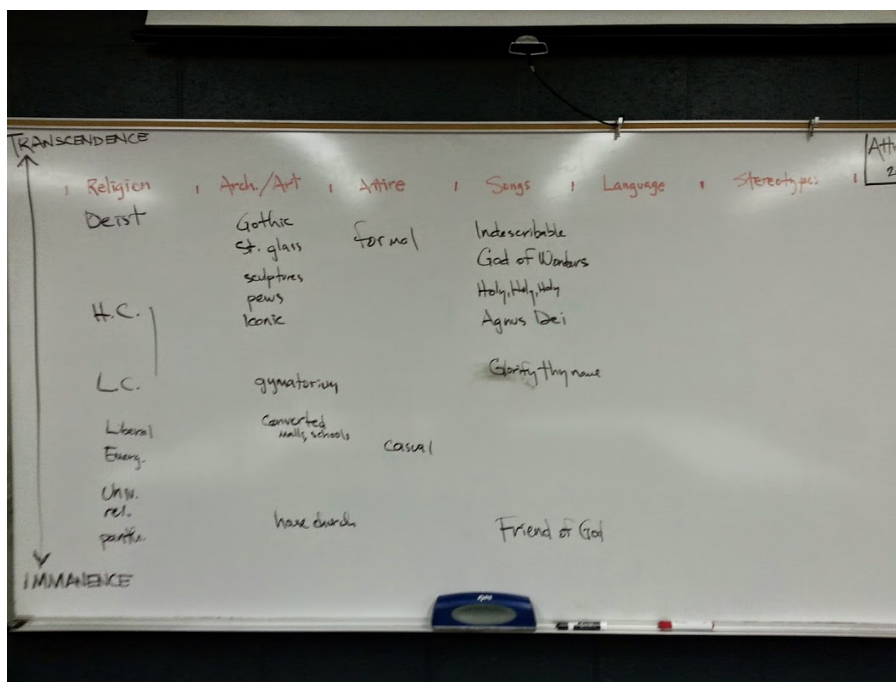 TRANSCENDENCE
Religion Arch./Art Attire Songs Language Stereotypes
Deist
H.C.
L.C.
Liberal
Emerg.
Univ.
rel.
panthe.
IMMANENCE
Gothic
St. glass
sculptures
pews
Iconic
gymatorium
Converted
malls, schools
house church
formal
casual
Indescribable
God of Wonders
Holy, Holy, Holy
Agnus Dei
Glorify thy name
Friend of God
expo